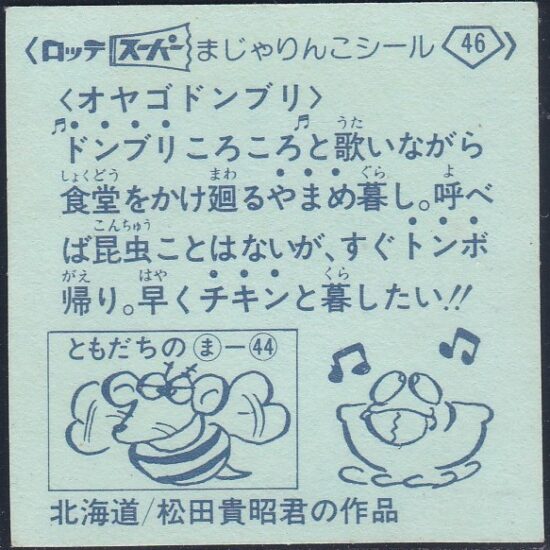 〈ロッテスーパーまじゃりんこシール 46〉
〈オヤゴドンブリ〉
ドンブリころころと歌いながら
食堂をかけ廻るやまめ暮し。呼べ
ば昆虫ことはないが、すぐトンボ
帰り。早くチキンと暮したい!!
ともだちの ま—44
北海道/松田貴昭君の作品